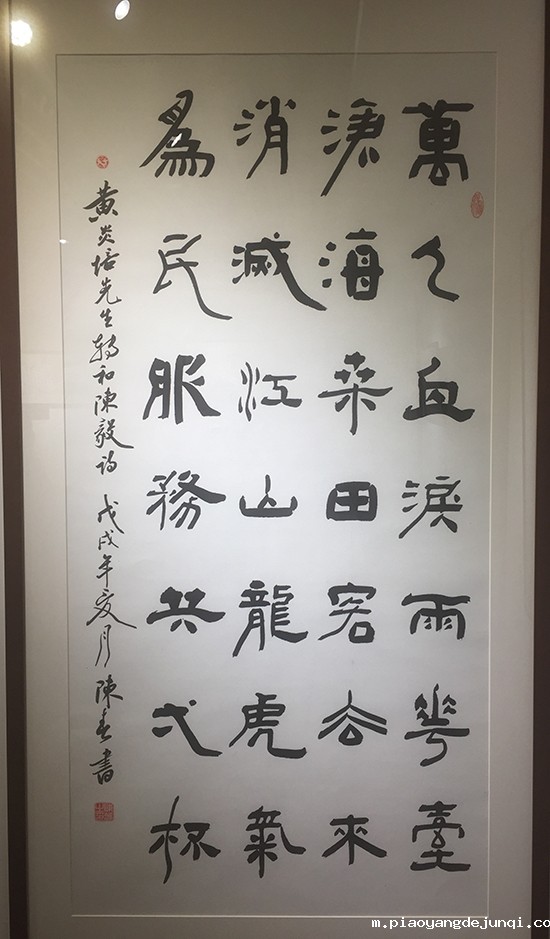 萬人血淚雨花臺
滄海桒田客去來
消滅江山龍虎氣
為民服務共弌杯
黃炎培先生轉和陳毅詩 戊戌年夏月 陳書
m.piaoyangdejunqi.co